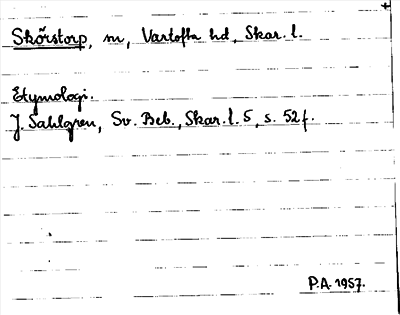 Skörstorp, sn, Vartofta hd, Skar. l.
Etymologi.
J. Sahlgren, Sv. Beb., Skar. l. 5, s. 52 f.
P.A. 1957.